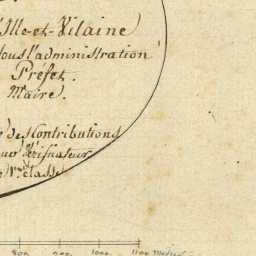 'Ille-et-Vilaine
sous l'administration
Préfet.
Maire.
des Contributions
Vérificateur
1re classe
800 900 1000 1100 Mètres